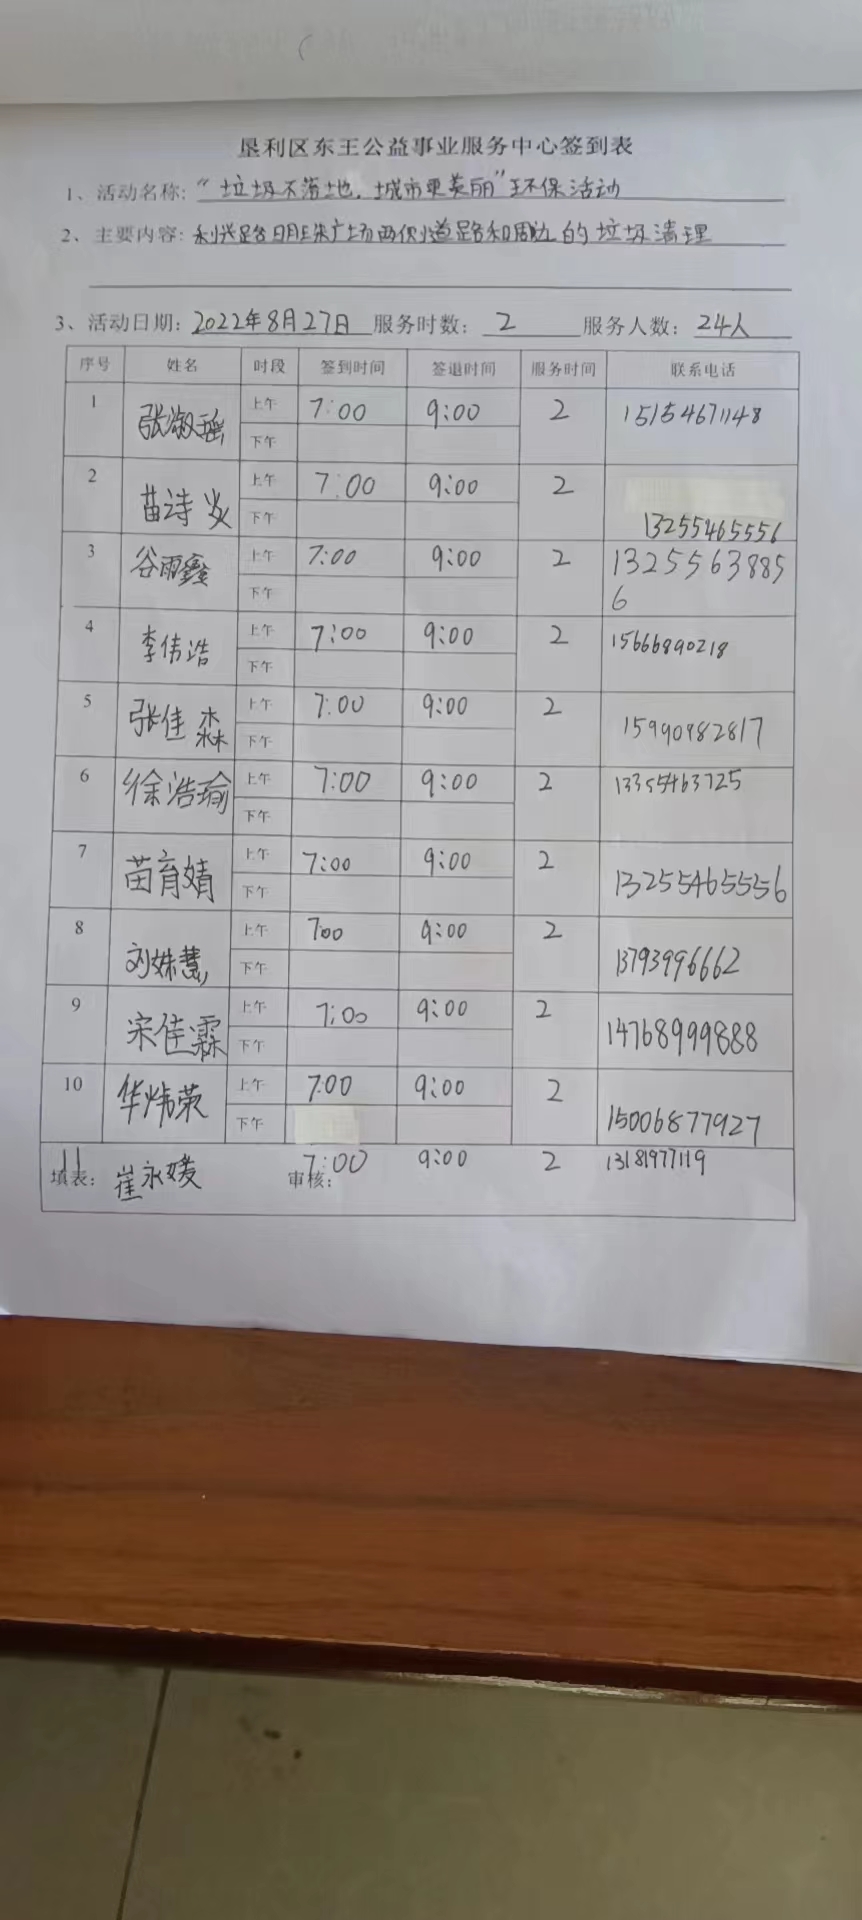 垦利区东王公益事业服务中心签到表
1、活动名称:“垃圾不落地，城市更美丽”环保活动
2、主要内容:利兴路明珠广场两侧道路和周边的垃圾清理
3、活动日期:2022年8月27日 服务时数:2 服务人数:24人
序号 姓名 时段 签到时间 签退时间 服务时间 联系电话
1 张淑瑶 上午 7:00 9:00 2 15154671148
下午
2 苗诗炎 上午 7:00 9:00 2 13255465556
下午
3 谷雨鑫 上午 7:00 9:00 2 13255638856
下午
4 李伟浩 上午 7:00 9:00 2 15666890218
下午
5 张佳森 上午 7:00 9:00 2 15990982817
下午
6 徐浩瑜 上午 7:00 9:00 2 13355463725
下午
7 苗育婧 上午 7:00 9:00 2 13255465556
下午
8 刘姝慧 上午 700 9:00 2 13793996662
下午
9 宋佳霖 上午 7:00 9:00 2 14768999888
下午
10 华炜荣 上午 7:00 9:00 2 15006877927
下午
11 崔永媛 7:00 9:00 2 13181977119
填表: 审核: